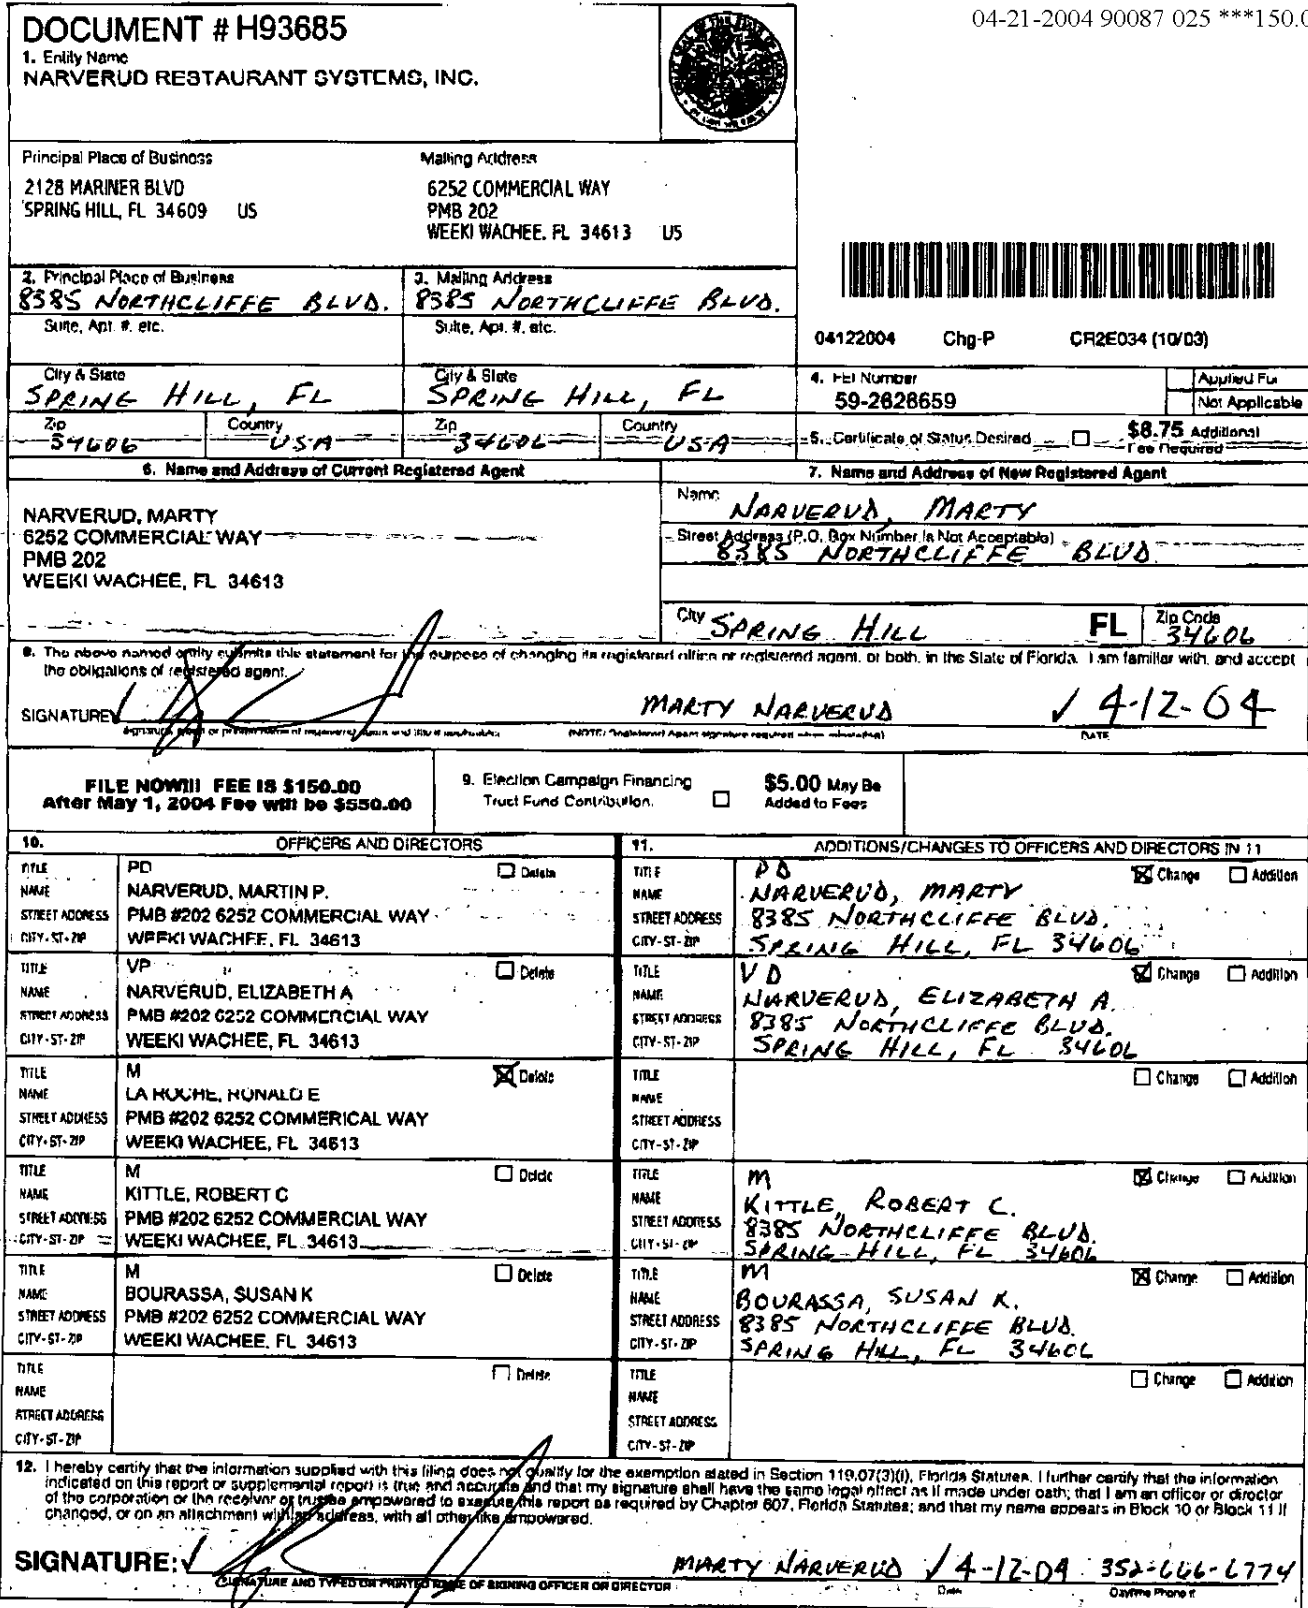 04-21-2004 90087 025 ***150.0
DOCUMENT # H93685
1. Entity Name
NARVERUD RESTAURANT SYSTEMS, INC.
Principal Place of Business
2128 MARINER BLVD
SPRING HILL, FL 34609 US
Mailing Address
6252 COMMERCIAL WAY
PMB 202
WEEKI WACHEE, FL 34613 US
2. Principal Place of Business
8385 NORTHCLIFFE BLVD.
3. Mailing Address
8385 NORTHCLIFFE BLVD.
Suite, Apt. #, etc.
Suite, Apt. #, etc.
04122004 Chg-P CR2E034 (10/03)
City & State
SPRING HILL, FL
City & State
SPRING HILL, FL
4. FEI Number
59-2628659
Applied For
Not Applicable
Zip
34606
Country
USA
Zip
34606
Country
USA
5. Certificate of Status Desired
$8.75 Additional
Fee Required
6. Name and Address of Current Registered Agent
NARVERUD, MARTY
6252 COMMERCIAL WAY
PMB 202
WEEKI WACHEE, FL 34613
7. Name and Address of New Registered Agent
Name
NARVERUD, MARTY
Street Address (P.O. Box Number is Not Acceptable)
8385 NORTHCLIFFE BLVD
City SPRING HILL FL Zip Code 34606
8. The above named entity submits this statement for the purpose of changing its registered office or registered agent, or both, in the State of Florida. I am familiar with, and accept
the obligations of registered agent.
SIGNATURE MARTY NARVERUD 4-12-04
Signature, typed or printed name of registered agent and title if applicable. (NOTE: Registered Agent signature required when reinstating) DATE
FILE NOW!!! FEE IS $150.00
After May 1, 2004 Fee will be $550.00
9. Election Campaign Financing
Trust Fund Contribution.
$5.00 May Be
Added to Fees
10. OFFICERS AND DIRECTORS
TITLE PD Delete
NAME NARVERUD, MARTIN P.
STREET ADDRESS PMB #202 6252 COMMERCIAL WAY
CITY-ST-ZIP WEEKI WACHEE, FL 34613
TITLE VP Delete
NAME NARVERUD, ELIZABETH A
STREET ADDRESS PMB #202 6252 COMMERCIAL WAY
CITY-ST-ZIP WEEKI WACHEE, FL 34613
TITLE M Delete
NAME LA ROCHE, RONALD E
STREET ADDRESS PMB #202 6252 COMMERICAL WAY
CITY-ST-ZIP WEEKI WACHEE, FL 34613
TITLE M Delete
NAME KITTLE, ROBERT C
STREET ADDRESS PMB #202 6252 COMMERCIAL WAY
CITY-ST-ZIP WEEKI WACHEE, FL 34613
TITLE M Delete
NAME BOURASSA, SUSAN K
STREET ADDRESS PMB #202 6252 COMMERCIAL WAY
CITY-ST-ZIP WEEKI WACHEE, FL 34613
TITLE Delete
NAME
STREET ADDRESS
CITY-ST-ZIP
11. ADDITIONS/CHANGES TO OFFICERS AND DIRECTORS IN 11
TITLE PD Change Addition
NAME NARVERUD, MARTY
STREET ADDRESS 8385 NORTHCLIFFE BLVD.
CITY-ST-ZIP SPRING HILL, FL 34606
TITLE VD Change Addition
NAME NARVERUD, ELIZABETH A.
STREET ADDRESS 8385 NORTHCLIFFE BLVD.
CITY-ST-ZIP SPRING HILL, FL 34606
TITLE Change Addition
NAME
STREET ADDRESS
CITY-ST-ZIP
TITLE M Change Addition
NAME KITTLE, ROBERT C.
STREET ADDRESS 8385 NORTHCLIFFE BLVD.
CITY-ST-ZIP SPRING HILL, FL 34606
TITLE M Change Addition
NAME BOURASSA, SUSAN K.
STREET ADDRESS 8385 NORTHCLIFFE BLVD.
CITY-ST-ZIP SPRING HILL, FL 34606
TITLE Change Addition
NAME
STREET ADDRESS
CITY-ST-ZIP
12. I hereby certify that the information supplied with this filing does not qualify for the exemption stated in Section 119.07(3)(i), Florida Statutes. I further certify that the information
indicated on this report or supplemental report is true and accurate and that my signature shall have the same legal effect as if made under oath; that I am an officer or director
of the corporation or the receiver or trustee empowered to execute this report as required by Chapter 607, Florida Statutes; and that my name appears in Block 10 or Block 11 if
changed, or on an attachment with an address, with all other like empowered.
SIGNATURE: MARTY NARVERUD 4-12-04 352-666-6774
SIGNATURE AND TYPED OR PRINTED NAME OF SIGNING OFFICER OR DIRECTOR Date Daytime Phone #